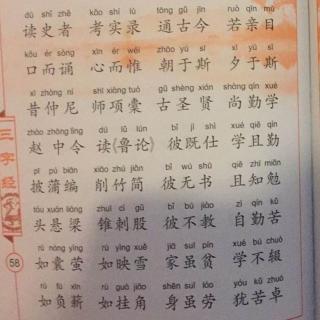 dú shǐ zhě kǎo shí lù tōng gǔ jīn ruò qīn mù
读史者 考实录 通古今 若亲目
kǒu ér sòng xīn ér wéi zhāo yú sī xī yú sī
口而诵 心而惟 朝于斯 夕于斯
xī zhòng ní shī xiàng tuó gǔ shèng xián shàng qín xué
昔仲尼 师项橐 古圣贤 尚勤学
zhào zhōng lìng dú lǔ lún bǐ jì shì xué qiě qín
赵中令 读《鲁论》 彼既仕 学且勤
pī pú biān xiāo zhú jiǎn bǐ wú shū qiě zhī miǎn
披蒲编 削竹简 彼无书 且知勉
tóu xuán liáng zhuī cì gǔ bǐ bú jiào zì qín kǔ
头悬梁 锥刺股 彼不教 自勤苦
rú náng yíng rú yìng xuě jiā suī pín xué bú chuò
如囊萤 如映雪 家虽贫 学不辍
rú fù xīn rú guà jiǎo shēn suī láo yóu kǔ zhuó
如负薪 如挂角 身虽劳 犹苦卓
三字经
58